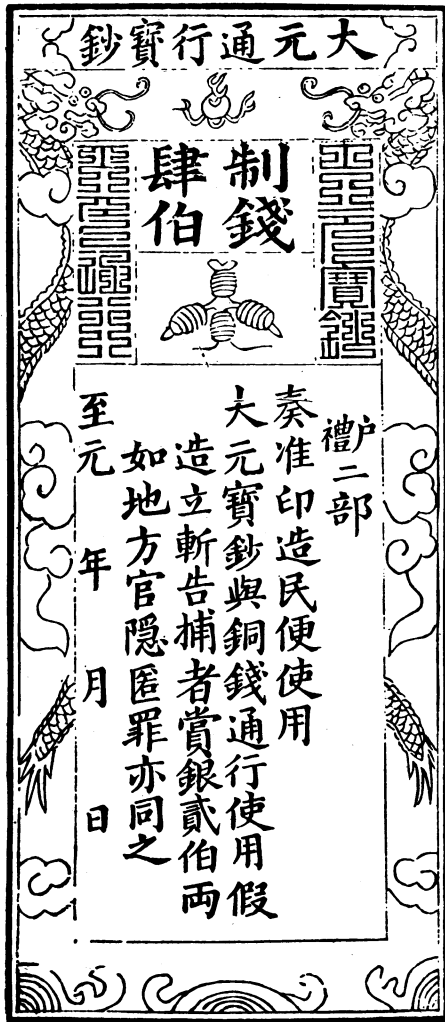 大元通行寶鈔
制錢
肆伯
户禮二部
奏准印造民便使用
大元寶鈔與銅錢通行使用假
造立斬告捕者賞銀貳伯両
如地方官隐匿罪亦同之
至元 年 月 日